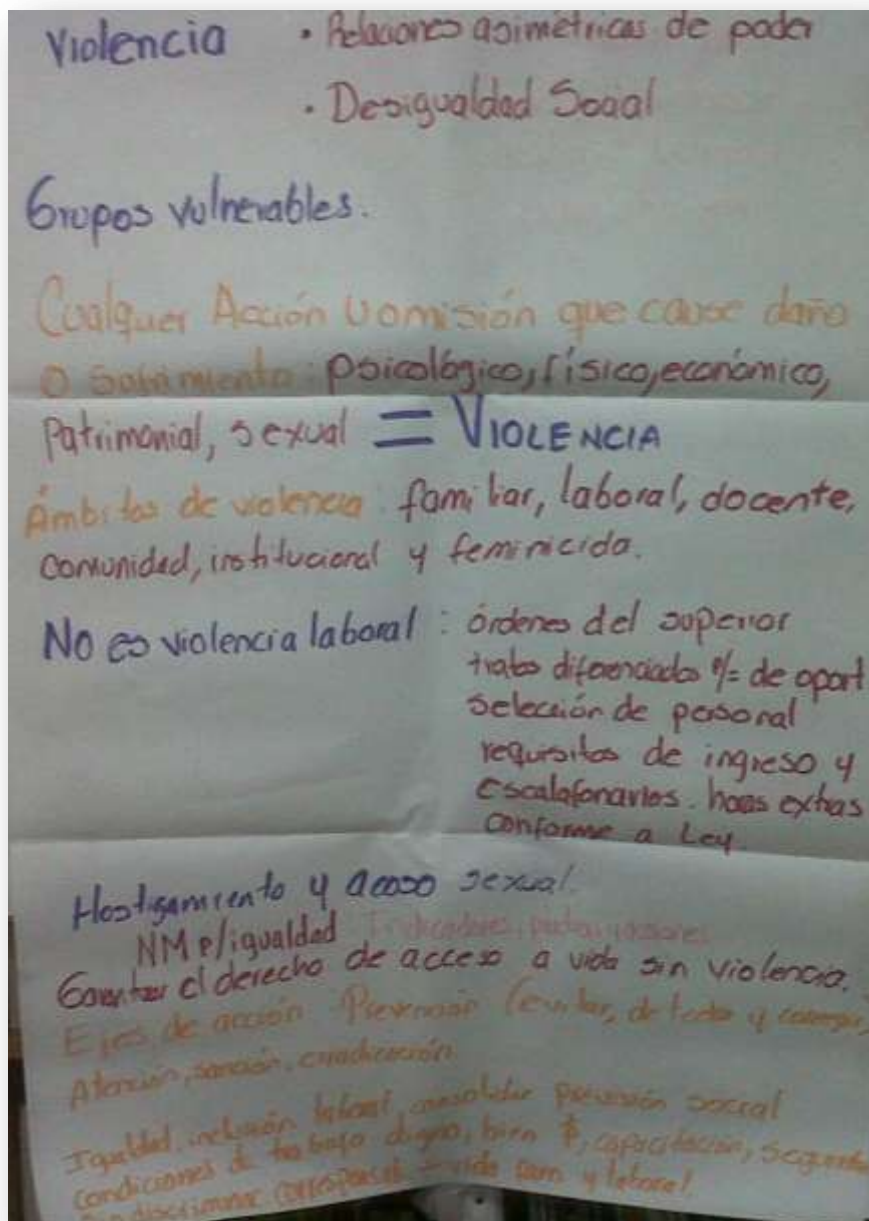 Violencia · Relaciones asimétricas de poder
· Desigualdad Social
Grupos vulnerables.
Cualquer Acción u omisión que cause daño
o : psicológico, físico, económico,
Patrimonial, sexual = VIOLENCIA
Ámbitos de violencia : familiar, laboral, docente,
comunidad, institucional y feminicida.
No es violencia laboral : órdenes del superior
tratos diferenciados de oport
selección de personal
requisitos de ingreso y
escalafonarios. horas extras
conforme a Ley.
Hostigamiento y acoso sexual.
NM p/igualdad Indicadores,
el derecho de acceso a vida sin violencia.
Ejes de acción Prevención (evitar, y
Atención, sanción, erradicación
Igualdad, inclusión laboral, consolidar previsión social
condiciones de trabajo digno, bien $, capacitación,
discriminar vida y laboral